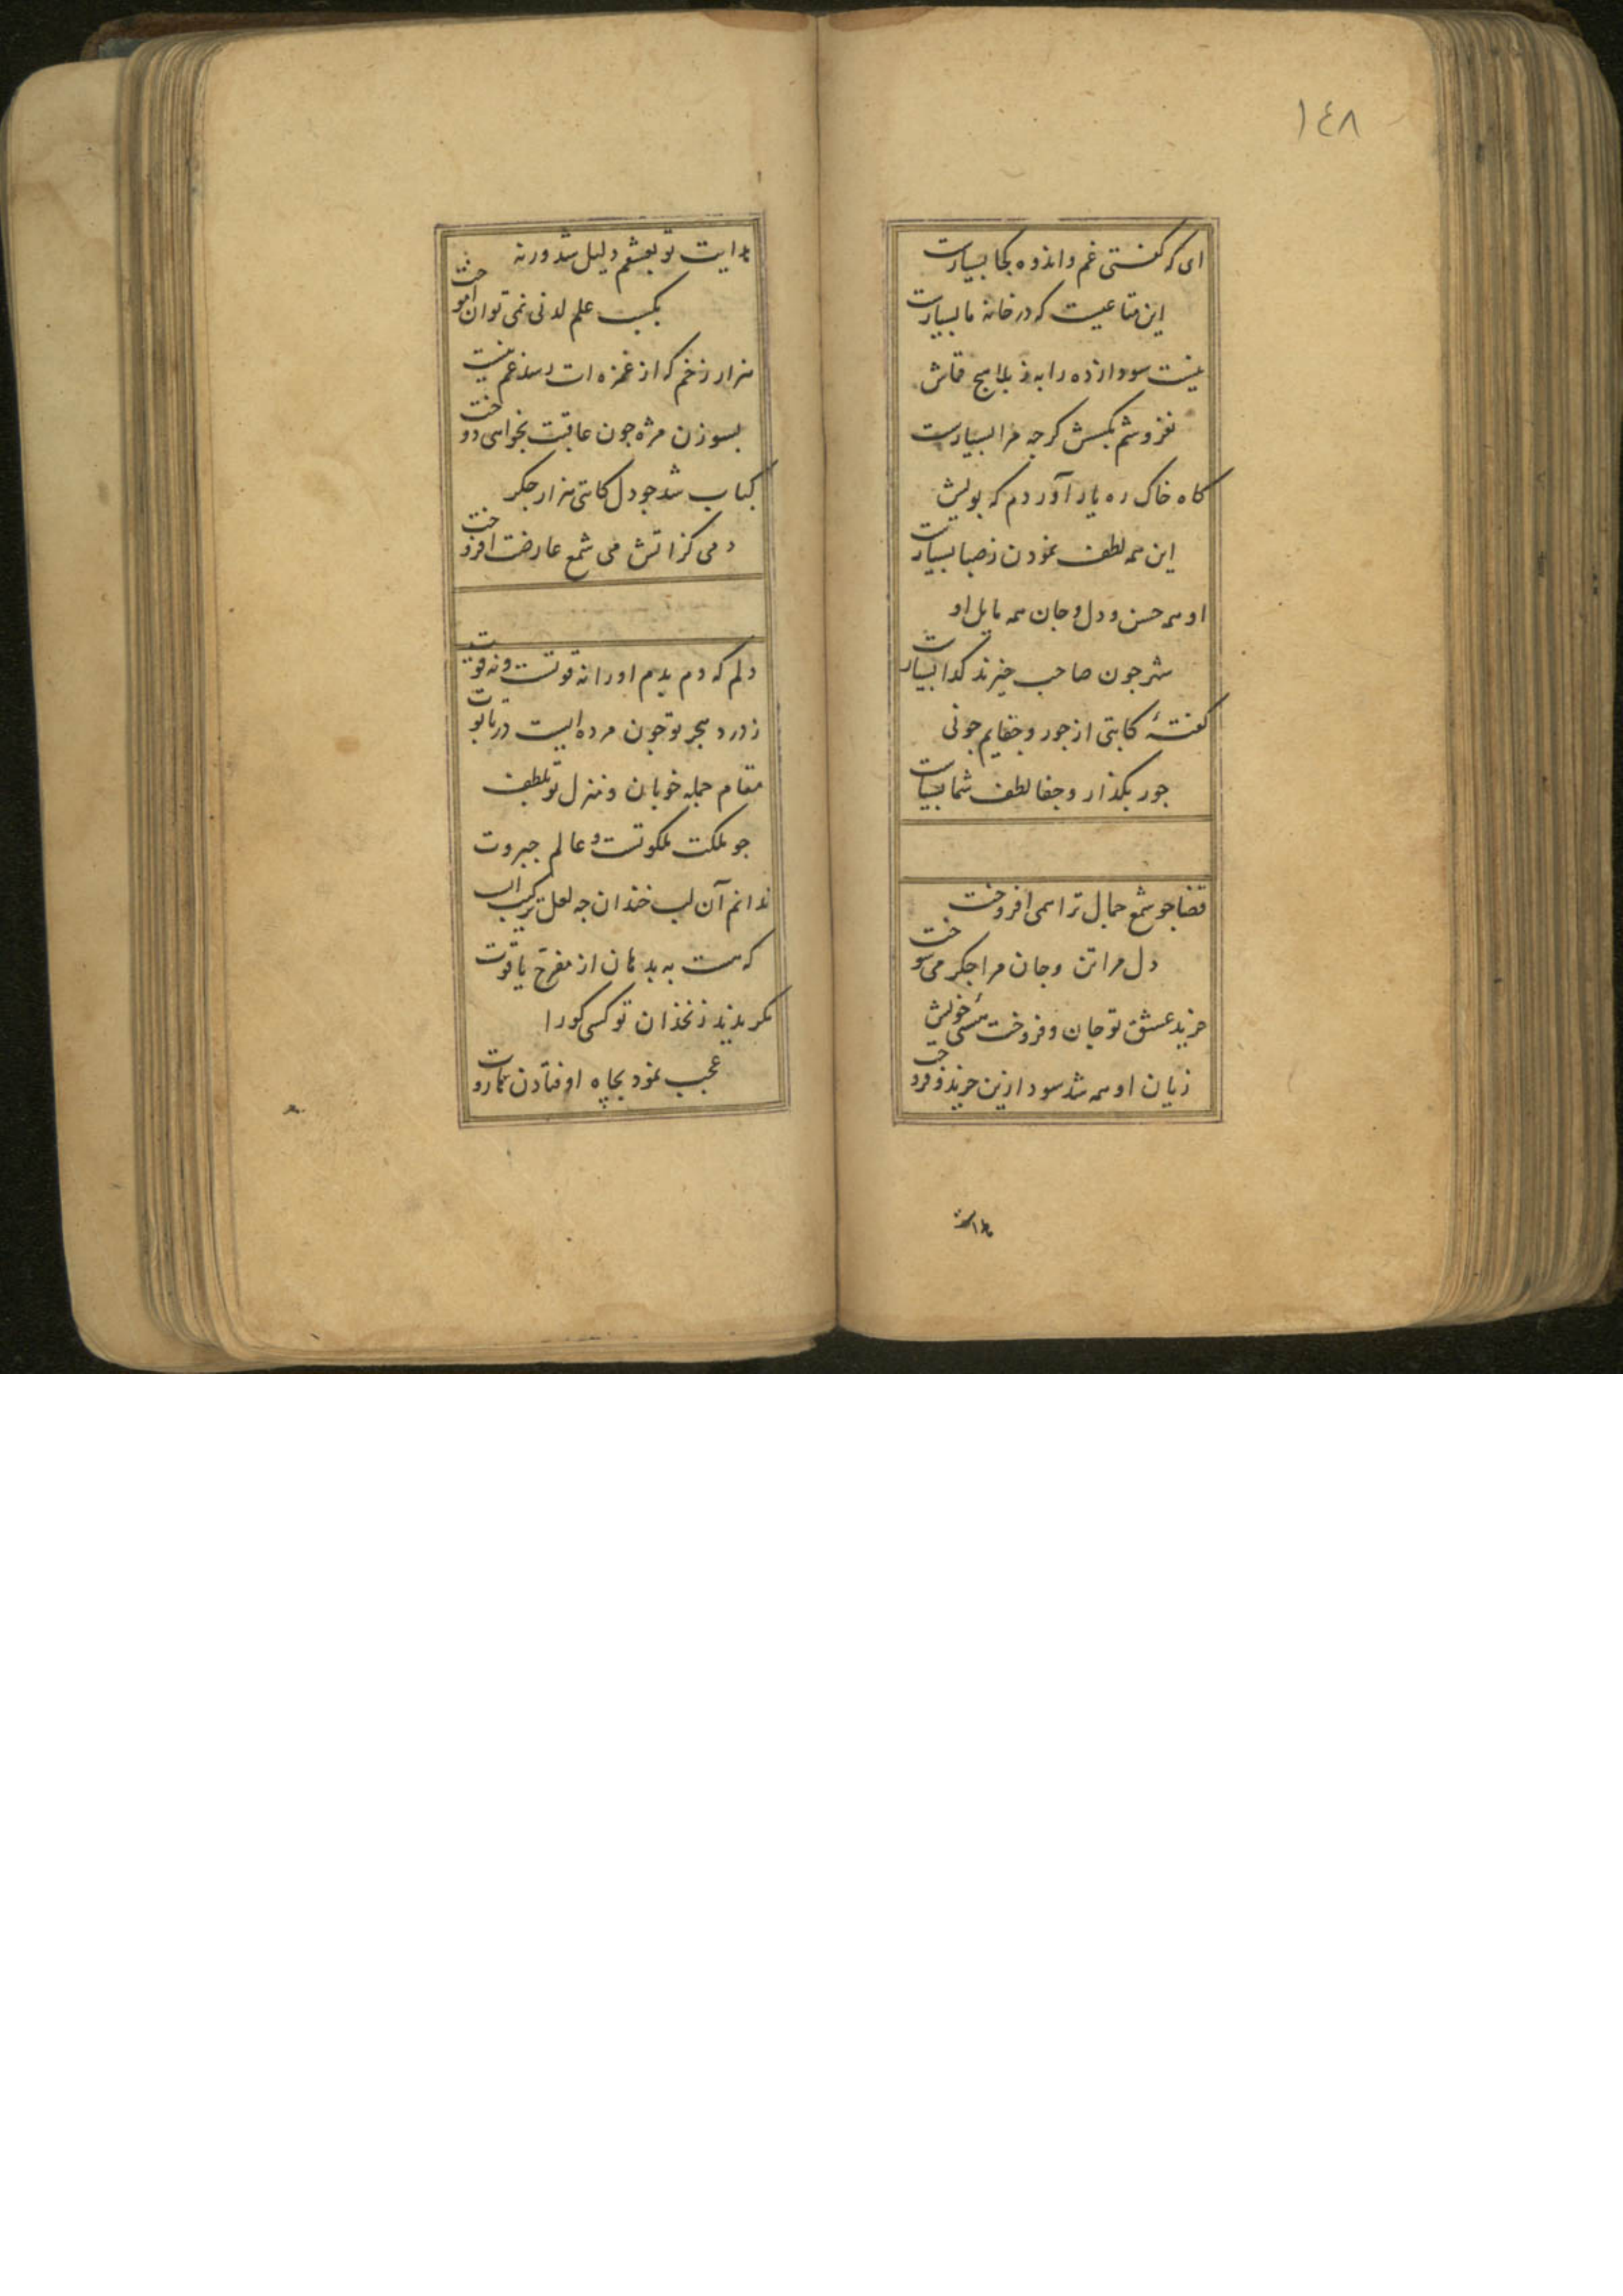 ١٤٨
ای که گفتی غم و اندوه کجا بسیارست
این متاعیست که در خانه ما بسیارست
نیست سودازده را به ز بلا هیچ قماش
نفروشم بکسش گرچه مرا بسیارست
گاه خاک ره یار آورد م که بویش
این همه لطف نمودن ز صبا بسیارست
او همه حسن و دل و جان همه مایل او
شهر چون صاحب خیرند گدا بسیارست
گفتهٔ کاتبی از جور و جفایم چونی
جور بگذار و جفا لطف شما بسیارست
قضا چو شمع جمال ترا همی افروخت
دل مرا تن و جان مرا جگر می سوخت
خرید عشق تو جان و فروخت هستی خویش
زیان او همه شد سود ازین خرید و فروخت
هدایت
هدایت تو بعشقم دلیل شد ورنه
بکسب علم لدنی نمی توان آموخت
هزار زخم که از غمزه ات رسد غم نیست
بسوزن مژه چون عاقبت بخواهی دوخت
کباب شد چو دل کاتبی هزار جگر
دمی کز آتش می شمع عارضت افروخت
دلم که دم بدم او را نه قوتست و نه قوت
ز درد هجر تو چون مرده ایست در تابوت
مقام جمله خوبان و منزل تو بلطف
چو ملکت ملکوتست و عالم جبروت
ندانم آن لب خندان چه لعل ترکیب است
که هست به بدهان از مفرح یاقوت
مگر بدید زنخدان تو کسی کو را
عجب نمود بچاه اوفتادن هاروت